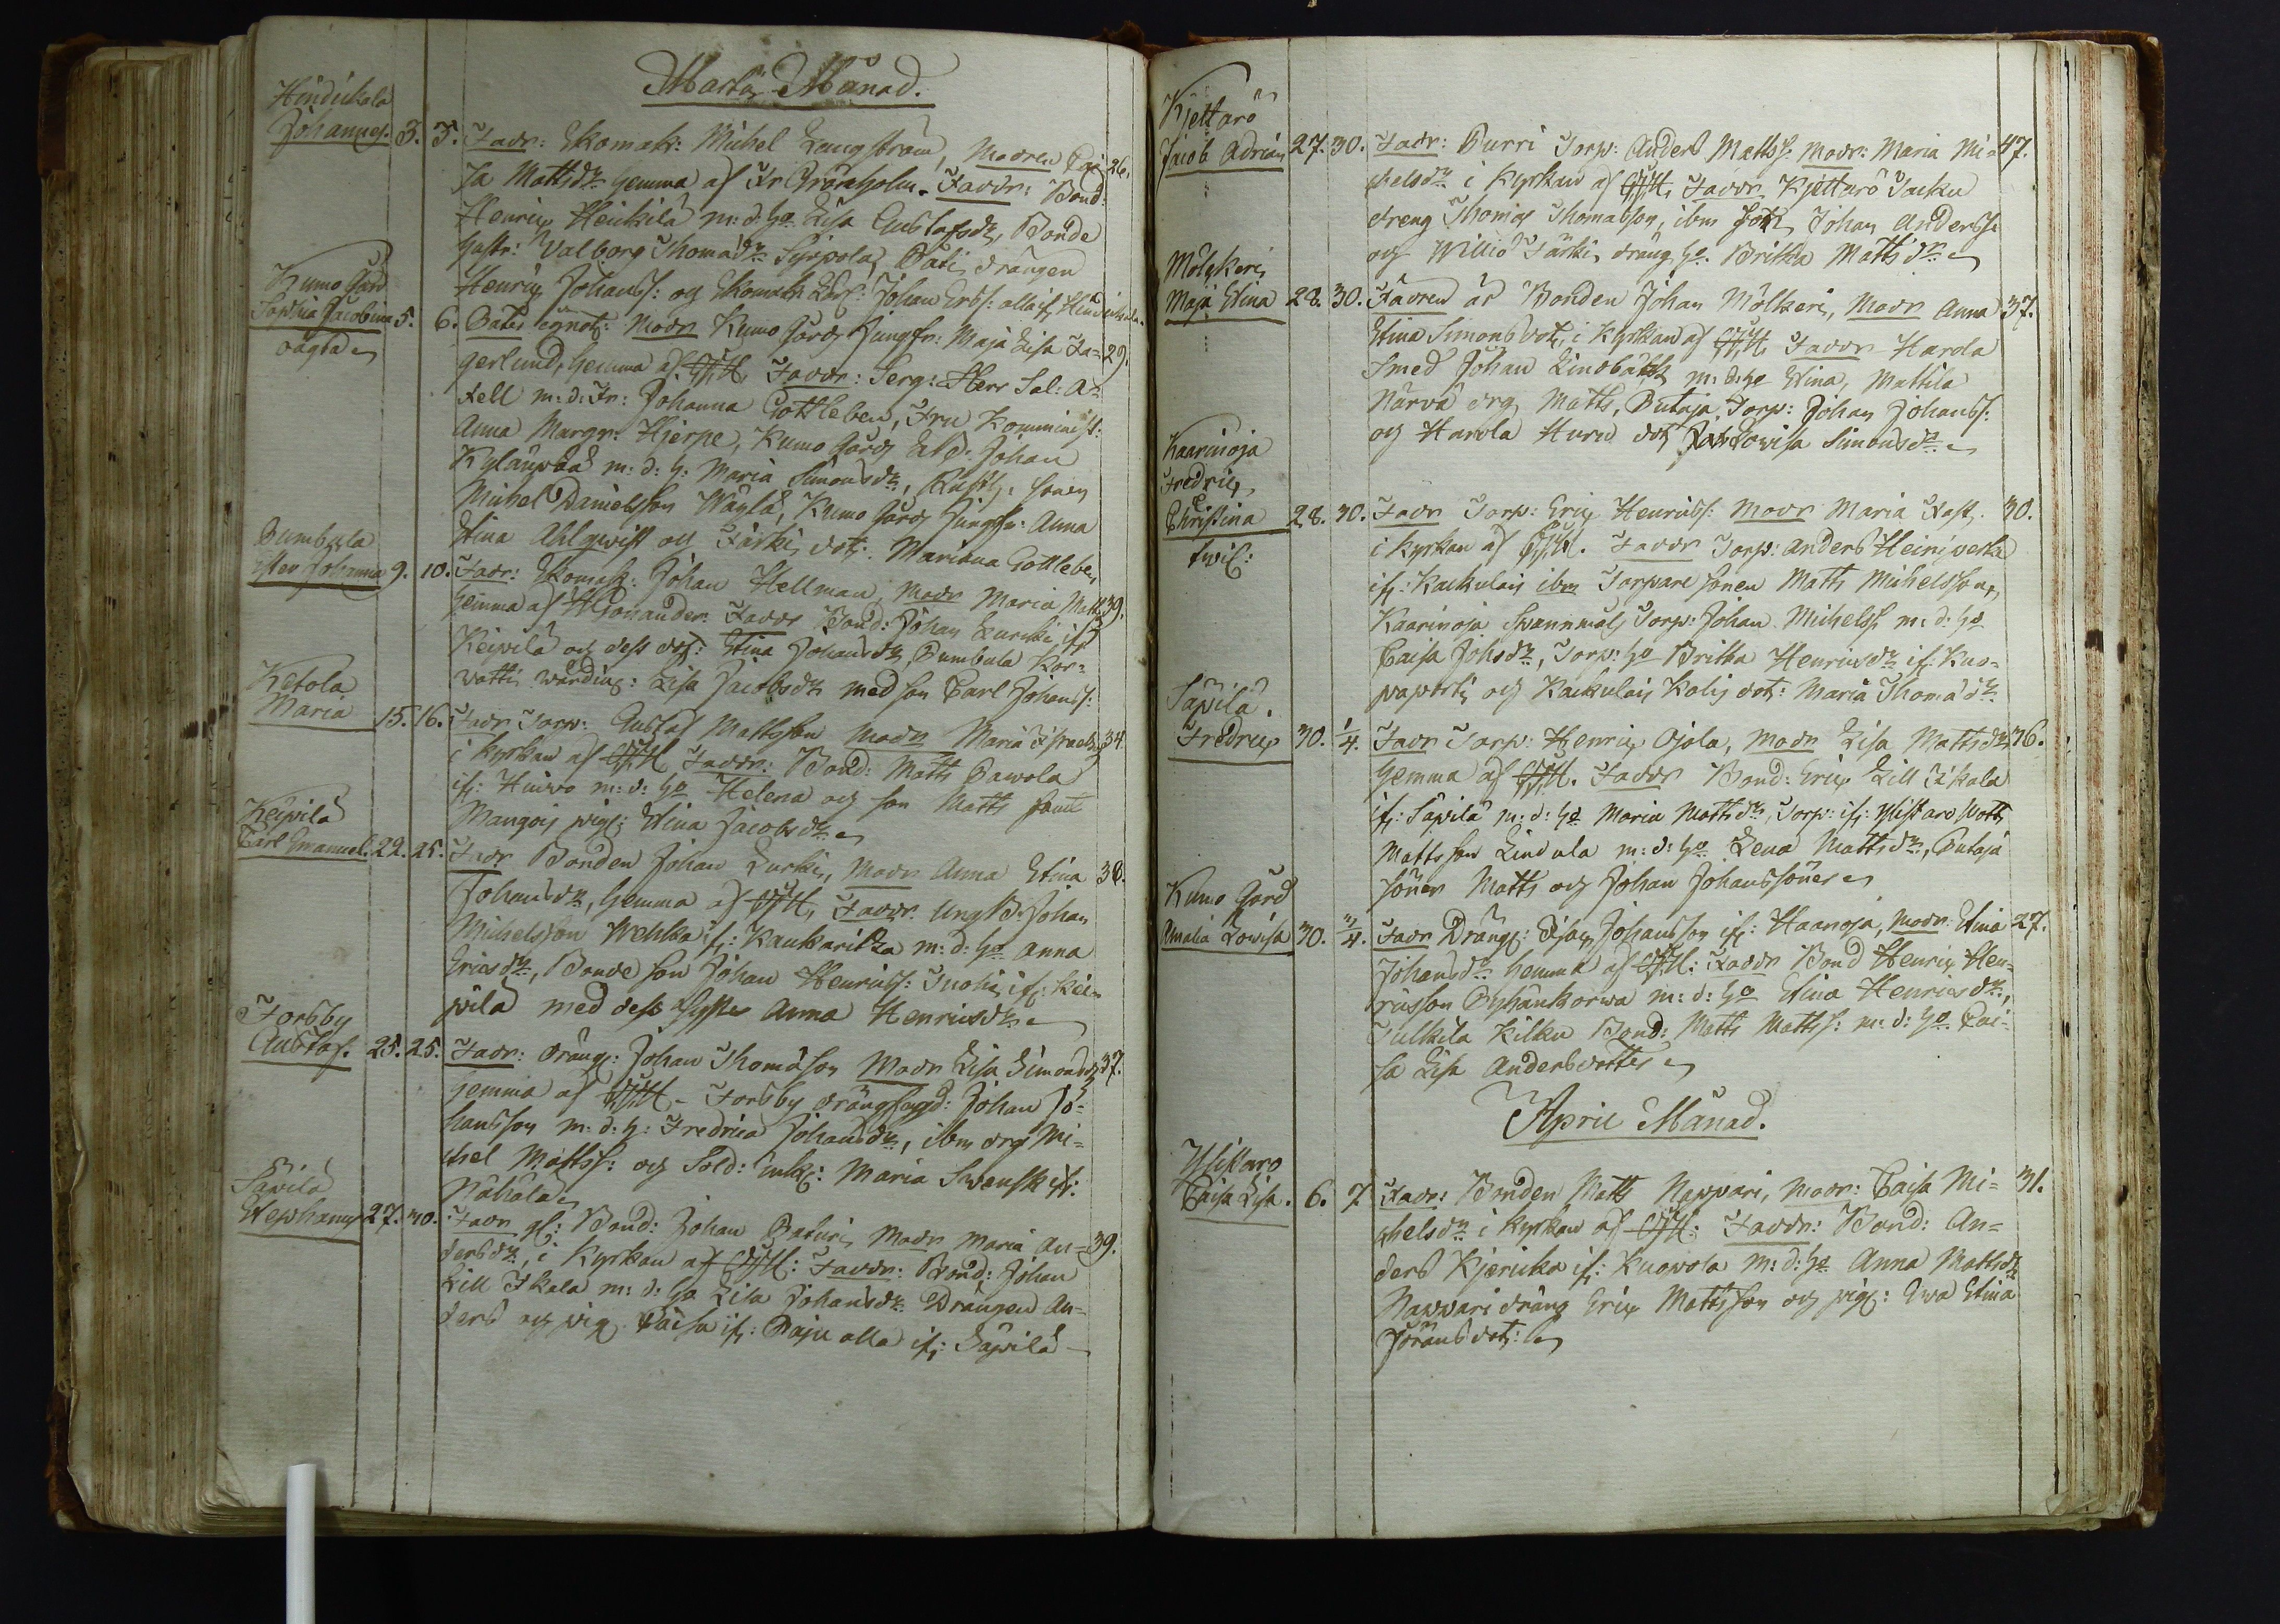 Martii Månad.
Hindikala
Johannes. 3. 5. Fadr: Skomak: Michel Langström, Modren Cai= 26.
sa Mattsdr hemma af Fr Grönholm. Faddr: Bond:
Henric Heickilä m: d: ho Lisa Gustafsdr, Bonde
hustr: Valborg Thomadr Sippola, Pati drängen
Henric Johanss: og Skomak Johan alla if Hindikala
Kumo Gård
Sophia Jacobina 5. 6. Pater ignot: Modr Kumo Gårds Jungfr: Maja Lisa Fa= 29.
oägta
gerlund, hemma af Faddr: Serg: Herr Sal: A=
xell m: d: Fr: Johanna Gottleben, Fru Komminist:
Anna Margr: Hjerpe, Kumo Gårds Johan
Kylänpää m: d: h: Maria Simonsdr, Rusth: sonen
Michel Danielsson Wäylä, Kumo Gårds Jungfr: Anna
Stina Ahlqwist og Järki dotr: Mariana Gottleben
Cumbula
Johanna 9. 10. Fadr: Skomak: Johan Hellman, Modr Maria Matts 39.
hemma af Faddr Bond: Johan Lurcki if
Keipilä og dess dotr: Stina Johansdr, Cumbula Kor=
watti wärding: Lisa Jacobsdr med son Carl Johanss:
Ketola
Maria 15. 16. Fadr Torp: Gustaf Mattsson Modr Maria Israels 34.
i kyrkan af Faddr: Bond: Matts Pawola
if: Huiwo m: d: ho Helena og son Matts samt
Mangois pig: Stina Jacobsdr
Keipilä
Carl Emanuel. 22. 25. Fadr Bonden Johan Lurcki, Modr Anna Stina 38.
Johansdr, hemma af Faddr. Ung B: Johan
Michelsson Wehka if: Kaukaritza m: d: ho Anna
Ericsdr, Bonde son Johan Henricss: Inohi if: Kei=
pilä med dess Syster Anna Henricsdr
Forsby
Gustaf. 25. 25. Fadr: dräng: Johan Thomason Modr Lisa Simonsdr 37.
hemma af Forsby drängfogd: Johan Jo=
hansson m: d: h: Fredrica Johansdr, ibm drg Mi=
chel Mattss: og Sold: enk: Maria Swensk if:
Näkälä
Säpilä
Stephanus 27. 30. Fadr gl: Bond: Johan Paturi Modr Maria An= 39.
dersdr, i Kyrkan af Faddr: Bond: Johan
Lill Ikala m: d: ho Lisa Johansdr Drängen An=
ders og pig Caisa if: Paju alla if: Säpilä
Kjettarö
Jacob Adrian 27. 30. Fadr: Purri Torp: Anders Mattss: Modr: Maria Mi= 47.
chelsdr i Kyrkan af Faddr Kjettarö Jacku
dreng Thomas Thomasson, ibm Johan Anderss:
og Williö Järki dräng ho Britha Mattsdr
Mölckeri
Maja Stina 28. 30. Fadren är Bonden Johan Mölkeri, Modr Anna 37.
Stina Simonsdotr, i kyrkan af Faddr Harola
Smed Johan Lindbäck m: d: ho Stina, Mattila
Närvä drg Matts, Putaja Torp: Johan Johanss:
og Harola Huru dotr Lowisa Simonsdr
Kaarinoja
Fredric
Christina 28. 30. Fadr Torp: Eric Henricss: Modr Maria Kast 30.
twil:
i kyrkan af Faddr Torp: Anders
if: Kackulais ibm Torpare sonen Matts Michelsson,
Kaarinoja Spannmåls Torp: Johan Michelss m: d: ho
Caisa Johsdr, Torp: ho Britha Henricsdr if: Kuo=
paporti og Kackulais Kolis dotr: Maria Thomadr
Säpilä.
Fredric 30. 1/4. Fadr Torp: Henric Ojala, Modr Lisa Mattsdr 36.
hemma af Faddr Bond: Eric Lill Ikala
if: Säpilä m: d: ho Maria Mattsdr, Torp: if: Ylistaro Matts
Mattsson Lindula m: d: ho Lena Mattsdr, Putaja
söner Matts og Johan Johanssöner
Kumo Gård
Amalia Lowisa 30. 1/4. Fadr Dräng: Isac Johansson if: Haanoja, Modr: Stina 27.
Johansdr hemma af Faddr Bond Henric Hen=
ricsson Pyhänkorwa m: d: ho Stina Henricsdr,
Tulkila Kilku Bond: Matts Mattss: m: d: ho Cai=
sa Lisa Andersdotter
April Månad.
Ylistaro
Caisa Lisa. 6. 7. Fadr: Bonden Matts Nappari, Modr: Caisa Mi= 31.
chelsdr i kyrkan af Faddr: Bond: An=
ders Kjericka if: Kuopola m: d: ho Anna Mattsdr
Nappari dräng Eric Mattsson og pig: Ewa Stina
Jöransdotr: